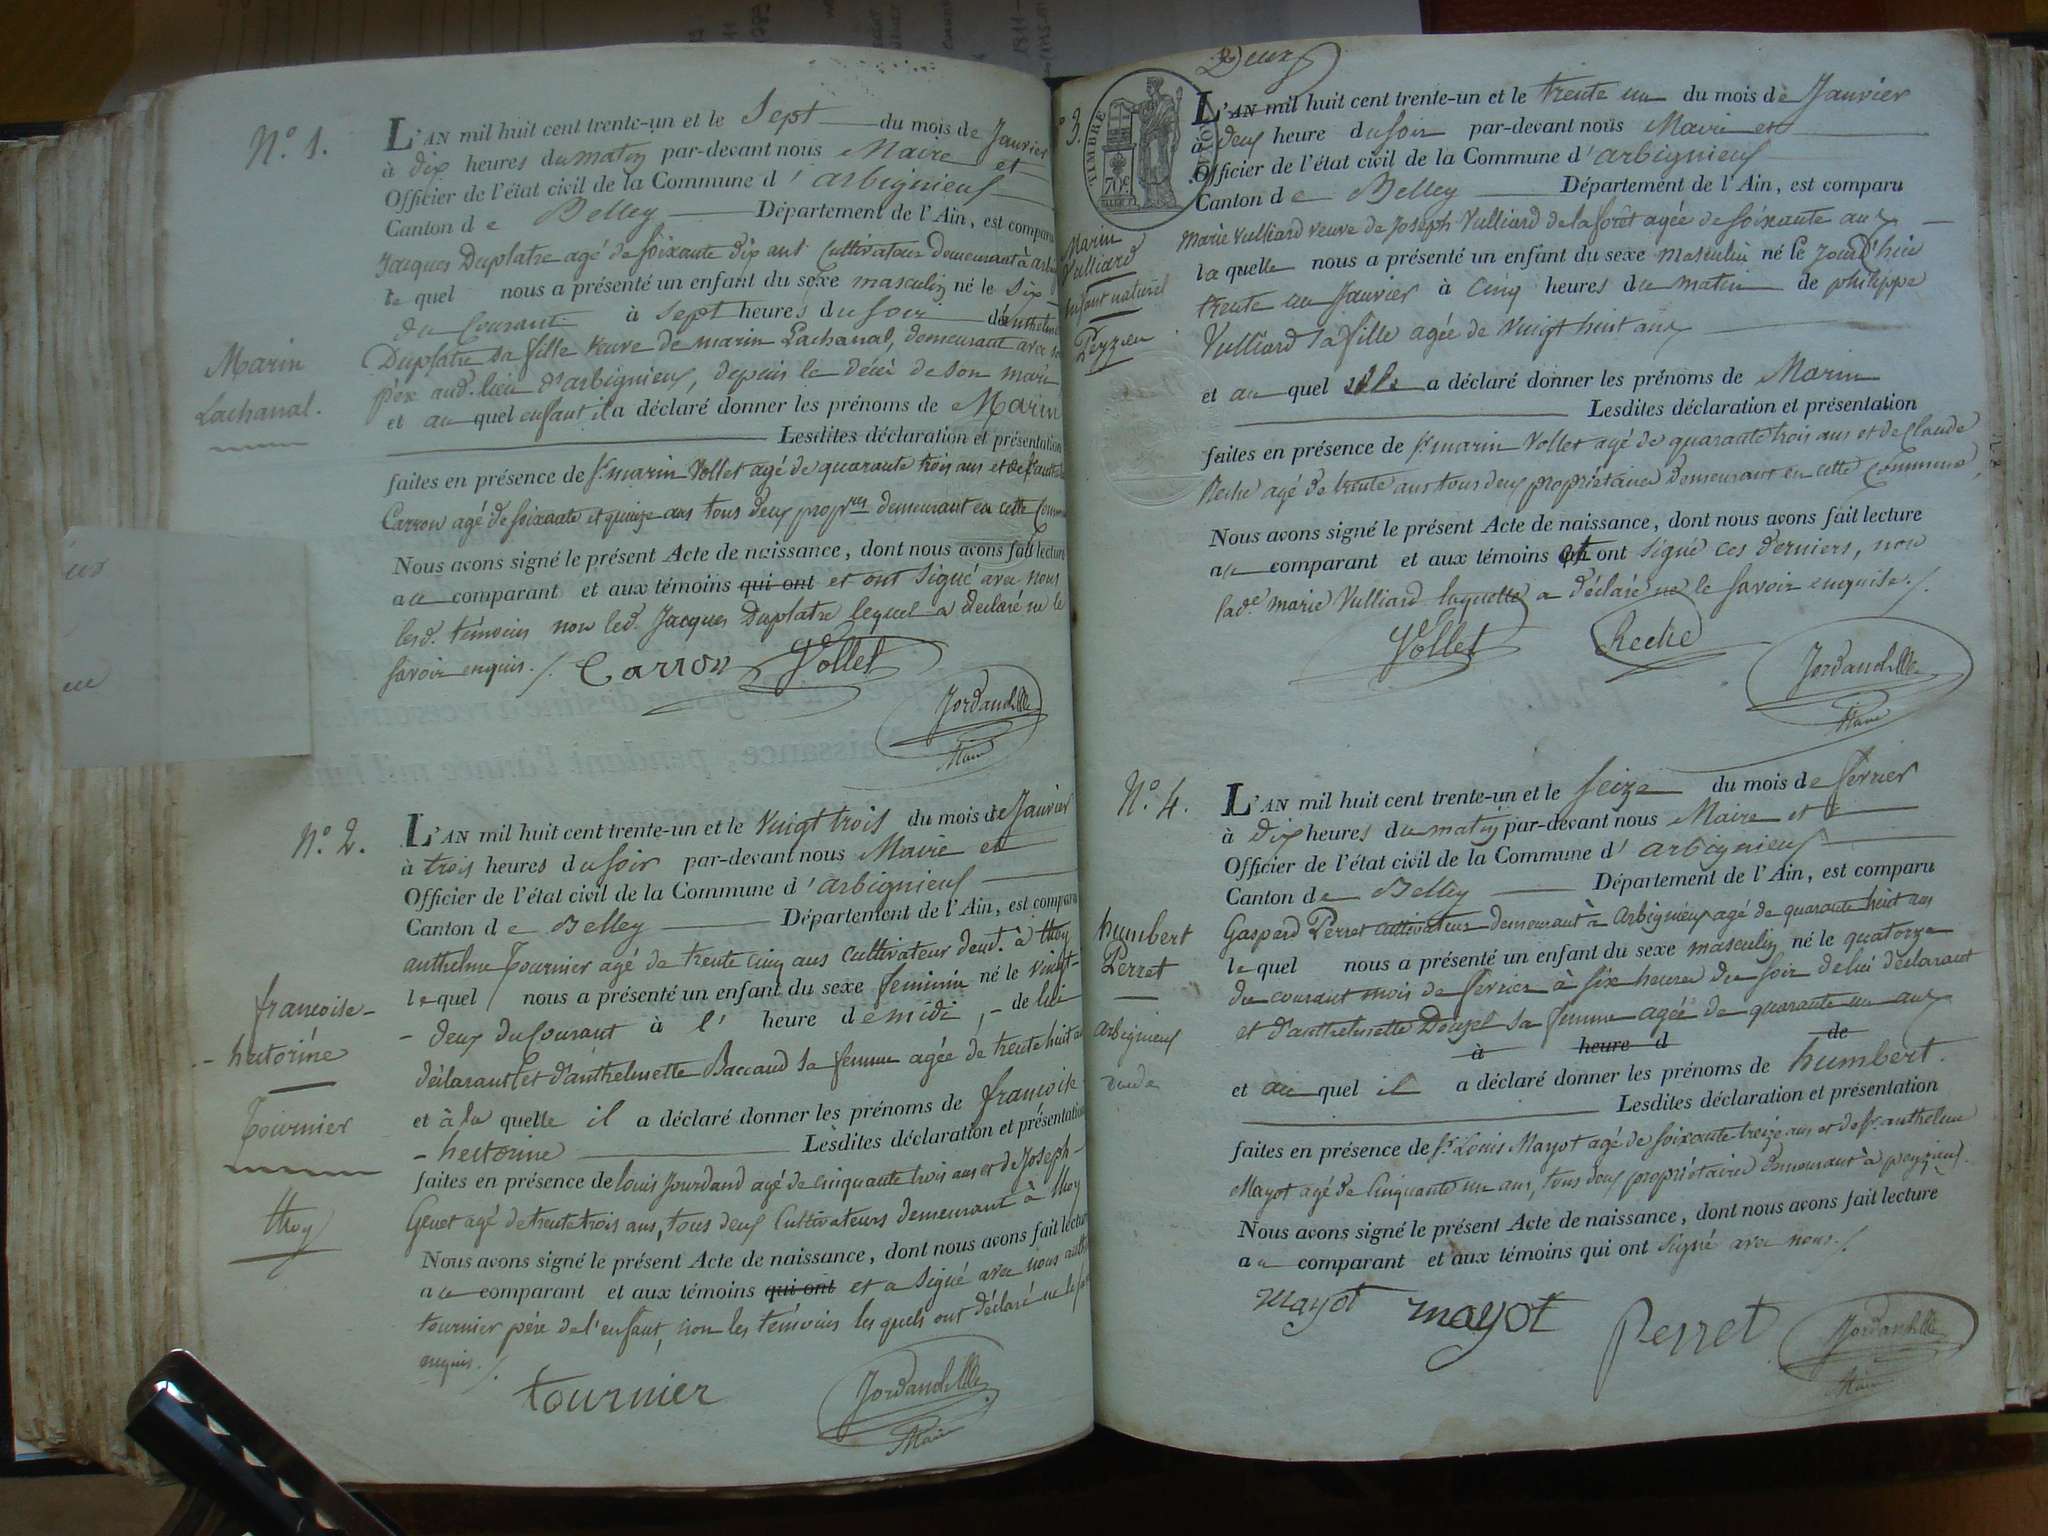 N.º 1.
L'AN mil huit cent trente-un et le Sept du mois de Janvier
à dix heures du matin par-devant nous Maire et
Officier de l'état civil de la Commune d'arbignieu
Canton de Belley Département de l'Ain, est comparu
Jacques Duplatre agé de soixante dix ans Cultivateur demeurant à arbig
le quel nous a présenté un enfant du sexe masculin né le six
du Courant à sept heures du soir d'anthelme
Duplatre sa fille veuve de marin Lachanal, demeurant avec son
père aud. lieu d'arbignieu, depuis le décés de son mari
et au quel enfant il a déclaré donner les prénoms de Marin
Lesdites déclaration et présentation
faites en présence de Sr marin Vollet agé de quarante trois ans et de
Carron agé de soixante et quinze ans tous deux propres demeurant en cette Commu
Nous avons signé le présent Acte de naissance, dont nous avons fait lecture
au comparant et aux témoins qui ont et ont signé avec nous
lesd. témoins non led. Jacques Duplatre lequel a déclaré ne le
savoir enquis./.
Carron Vollet
Jordandelle
Maire
Marin
Lachanal.
us
eu
N.º 2.
L'AN mil huit cent trente-un et le vingt trois du mois de Janvier
à trois heures du soir par-devant nous Maire et
Officier de l'état civil de la Commune d'arbignieu
Canton de Belley Département de l'Ain, est comparu
anthelme Tournier agé de trente cinq ans Cultivateur demt. à thoy
le quel nous a présenté un enfant du sexe feminin né le vingt-
-deux du Courant à l' heure de midi, - de lui
déclarant et d'anthelmette Baccaud sa femme agée de trente huit a
et à la quelle il a déclaré donner les prénoms de françoise
-hectorine Lesdites déclaration et présentation
faites en présence de louis Jourdand agé de cinquante trois ans et de Joseph-
Genet agé de trente trois ans, tous deux Cultivateurs demeurant à thoy
Nous avons signé le présent Acte de naissance, dont nous avons fait lecture
au comparant et aux témoins qui ont et a signé avec nous anth
tournier père de l'enfant, non les témoins les quels ont déclaré ne le sa
enquis./.
tournier
Jordandelle
Maire
françoise-
-hectorine
Tournier
thoy
Deux
TIMBRE ROYAL
70c
3.
L'AN mil huit cent trente-un et le trente un du mois de Janvier
à deux heure du soir par-devant nous Maire et
Officier de l'état civil de la Commune d'arbignieu
Canton de Belley Département de l'Ain, est comparu
Marie Vulliard veuve de Joseph Vulliard de la forêt agée de soixante ans
la quelle nous a présenté un enfant du sexe masculin né le jourd'hui
trente un Janvier à cinq heures du matin de philippe
Vulliard sa fille agée de vingt huit ans
et au quel elle a déclaré donner les prénoms de Marin
Lesdites déclaration et présentation
faites en présence de Sr marin Vollet agé de quarante trois ans et de Claude
Reche agé de trente ans tous deux propriétaires demeurant en cette Commune,
Nous avons signé le présent Acte de naissance, dont nous avons fait lecture
au comparant et aux témoins et ont signé ces derniers, non
lade. marie Vulliard laquelle a déclaré ne le savoir enquise./.
Vollet Reche
Jordandelle
Maire
Marin
Vulliard
enfant naturel
Peyzieu
N.º 4.
L'AN mil huit cent trente-un et le seize du mois de fevrier
à dix heures du matin par-devant nous Maire et
Officier de l'état civil de la Commune d'arbignieu
Canton de Belley Département de l'Ain, est comparu
Gaspard Perret cultivateur demeurant à Arbignieu agé de quarante huit ans
le quel nous a présenté un enfant du sexe masculin né le quatorze
du courant mois de fevrier à six heures du soir de lui déclarant
et d'anthelmette Douzel sa femme agée de quarante un ans
à heure d de
et au quel il a déclaré donner les prénoms de humbert.
Lesdites déclaration et présentation
faites en présence de Sr Louis Mayot agé de soixante-treize ans et de Sr anthelme
Mayot agé de Cinquante un ans, tous deux propriétaires demeurant à peyzieu.
Nous avons signé le présent Acte de naissance, dont nous avons fait lecture
au comparant et aux témoins qui ont signé avec nous./.
mayot mayot Perret
Jordandelle
Maire
humbert
Perret
arbignieu